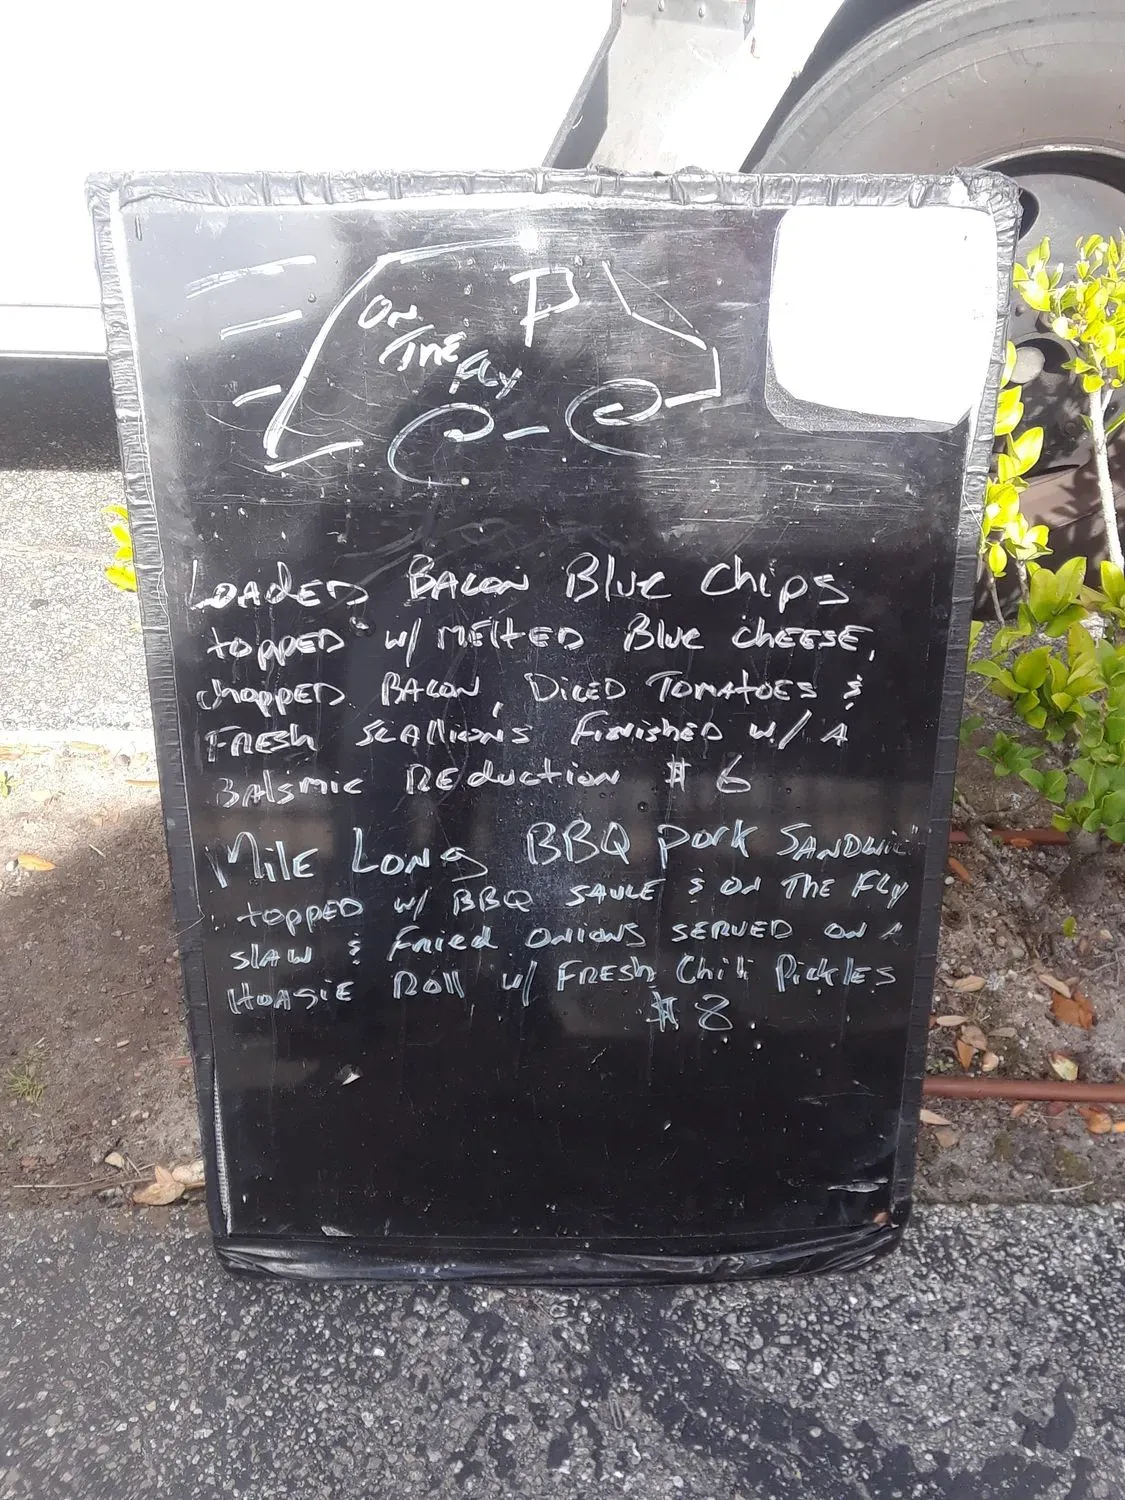 On
The
Fly
Loaded Bacon Blue Chips
topped w/ melted Blue cheese,
chopped Bacon, Diced Tomatoes &
Fresh Scallions Finished w/ A
Balsmic Reduction $6
Mile Long BBQ Pork Sandwic
topped w/ BBQ sauce & on The Fly
slaw & Fried onions served on A
Hoagie Roll w/ Fresh Chili Pickles
$8